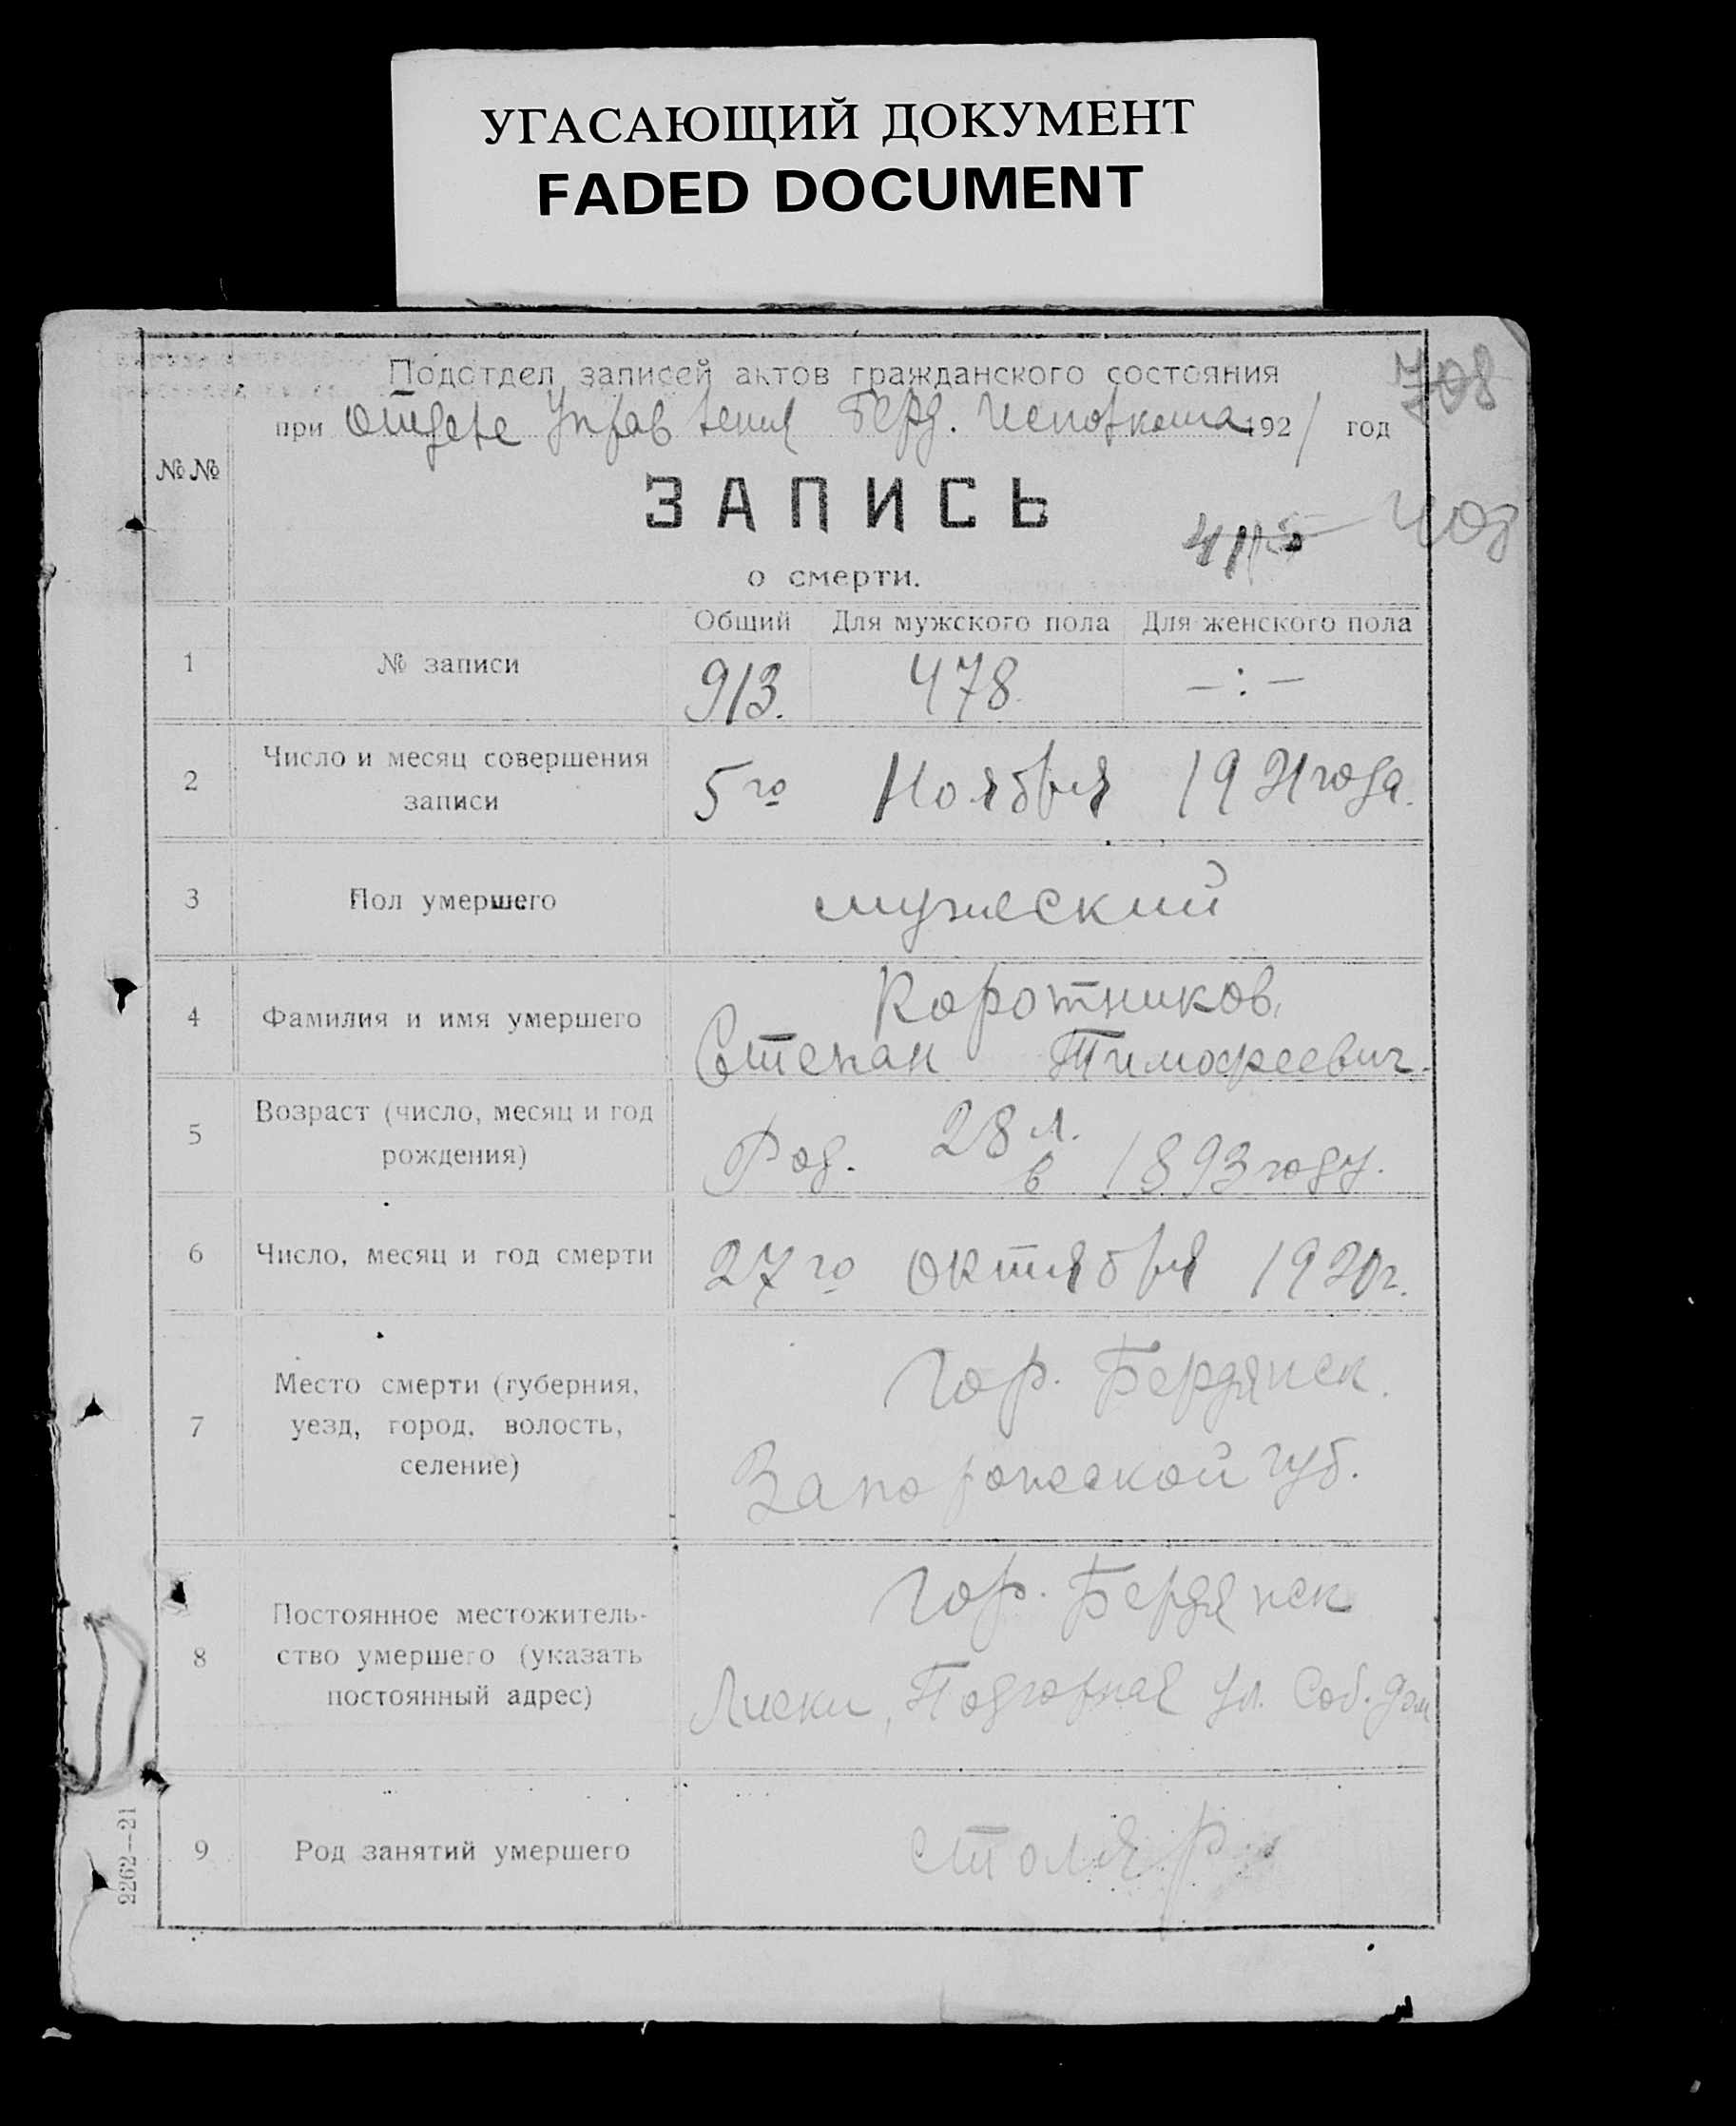 УГАСАЮЩИЙ ДОКУМЕНТ
FADED DOCUMENT
Подотдел записей актов гражданского состояния
708
при Отделе Управления Берд. Исполкома 1921 год
№№
ЗАПИСЬ
408
о смерти.
Общий Для мужского пола Для женского пола
1 № записи 913. 478 —:—
2 Число и месяц совершения
записи
5го Ноября 1921 года.
3 Пол умершего мужеский
4 Фамилия и имя умершего
Коротников,
Степан Тимофеевич.
5 Возраст (число, месяц и год
рождения)
28 л.
Род. в 1893 году.
6 Число, месяц и год смерти 27го октября 192 г.
7 Место смерти (губерния,
уезд, город, волость,
селение)
Гор. Бердянск.
Запорожеской губ.
8 Постоянное местожитель-
ство умершего (указать
постоянный адрес)
Гор. Бердянск
Лиски, Подгорная ул. Соб. дом
9 Род занятий умершего столяр
2262—21